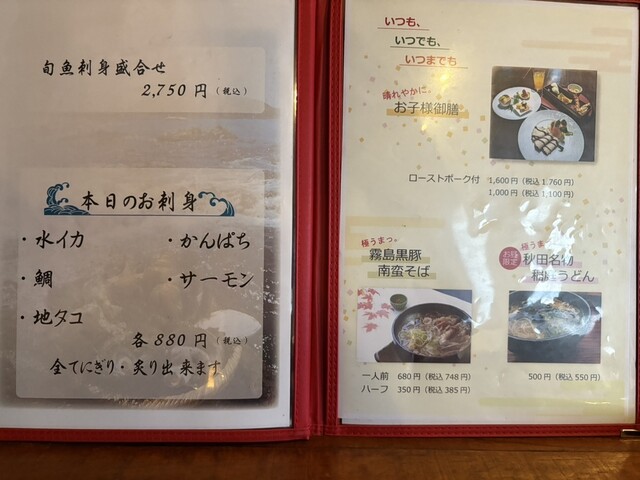 旬魚刺身盛合せ
2,750円(税込)
本日のお刺身
・水イカ
・かんぱち
・鯛
・サーモン
・地タコ
各880円(税込)
全てにぎり・炙り出来ます
いつも、
いつでも、
いつまでも
晴れやかに。
お子様御膳
ローストポーク付 1,600円(税込1,760円)
1,000円(税込1,100円)
極うまっ。
霧島黒豚
南蛮そば
一人前 680円(税込748円)
ハーフ 350円(税込385円)
極うまっ
秋田名物
稲庭うどん
500円(税込550円)